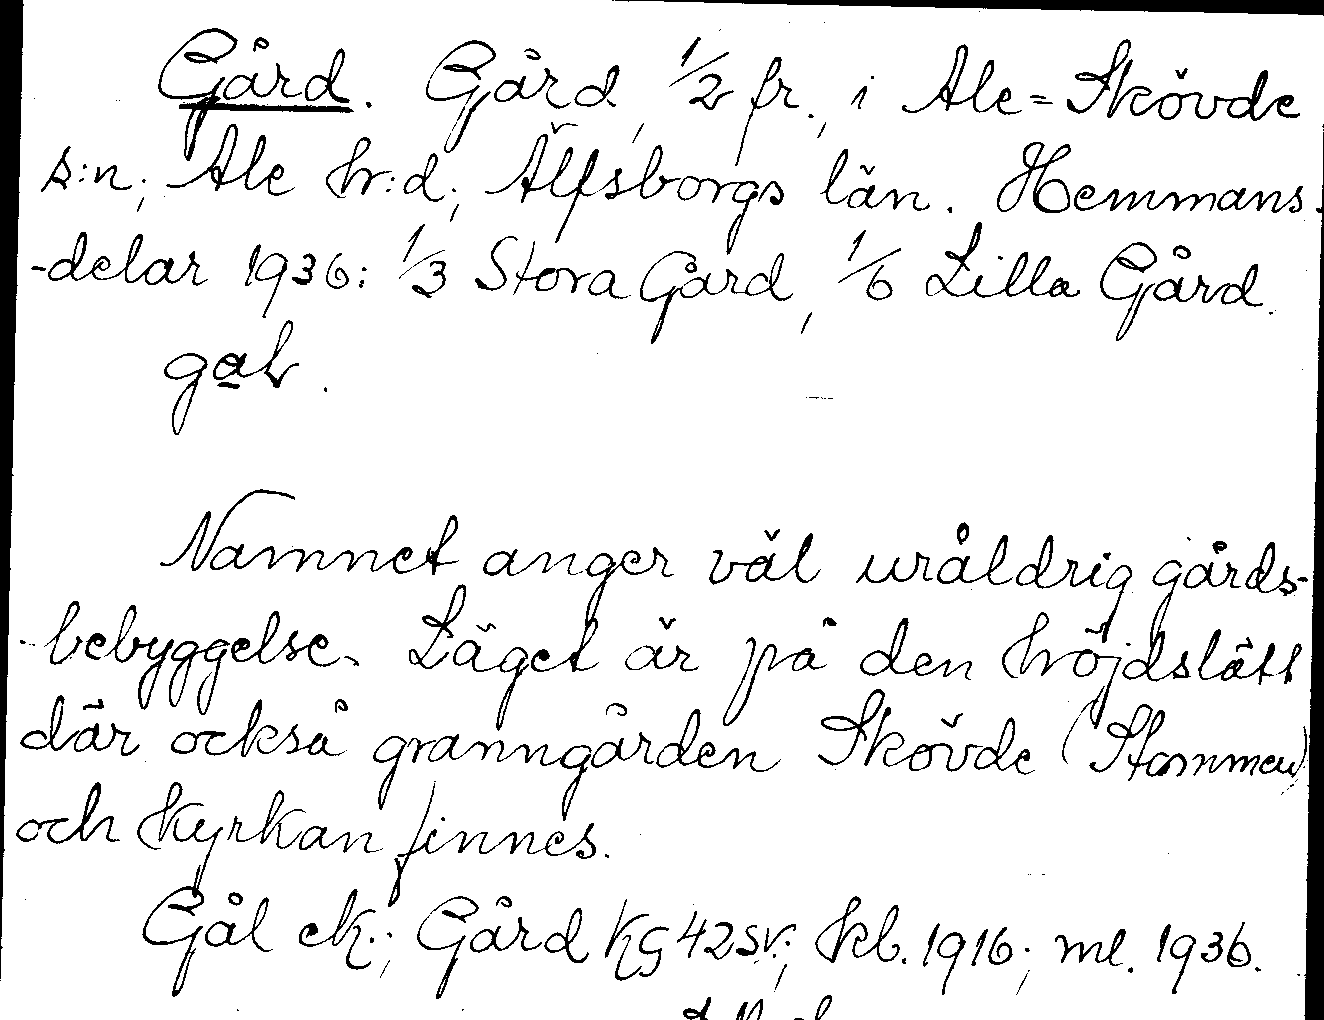 Gård. Gård, 1/2 fr., i Ale=Skövde
s:n, Ale hr:d, Älfsborgs län. Hemmans-
-delar 1936: 1/3 Stora Gård, 1/6 Lilla Gård.
gaḷ.
Namnet anger väl uråldrig gårds-
-bebyggelse. Läget är på den höjdslätt
där också granngården Skövde (Stommen)
och kyrkan finnes.
Gål ek.; Gård KG 42 sv.; kb. 1916; ml. 1936.